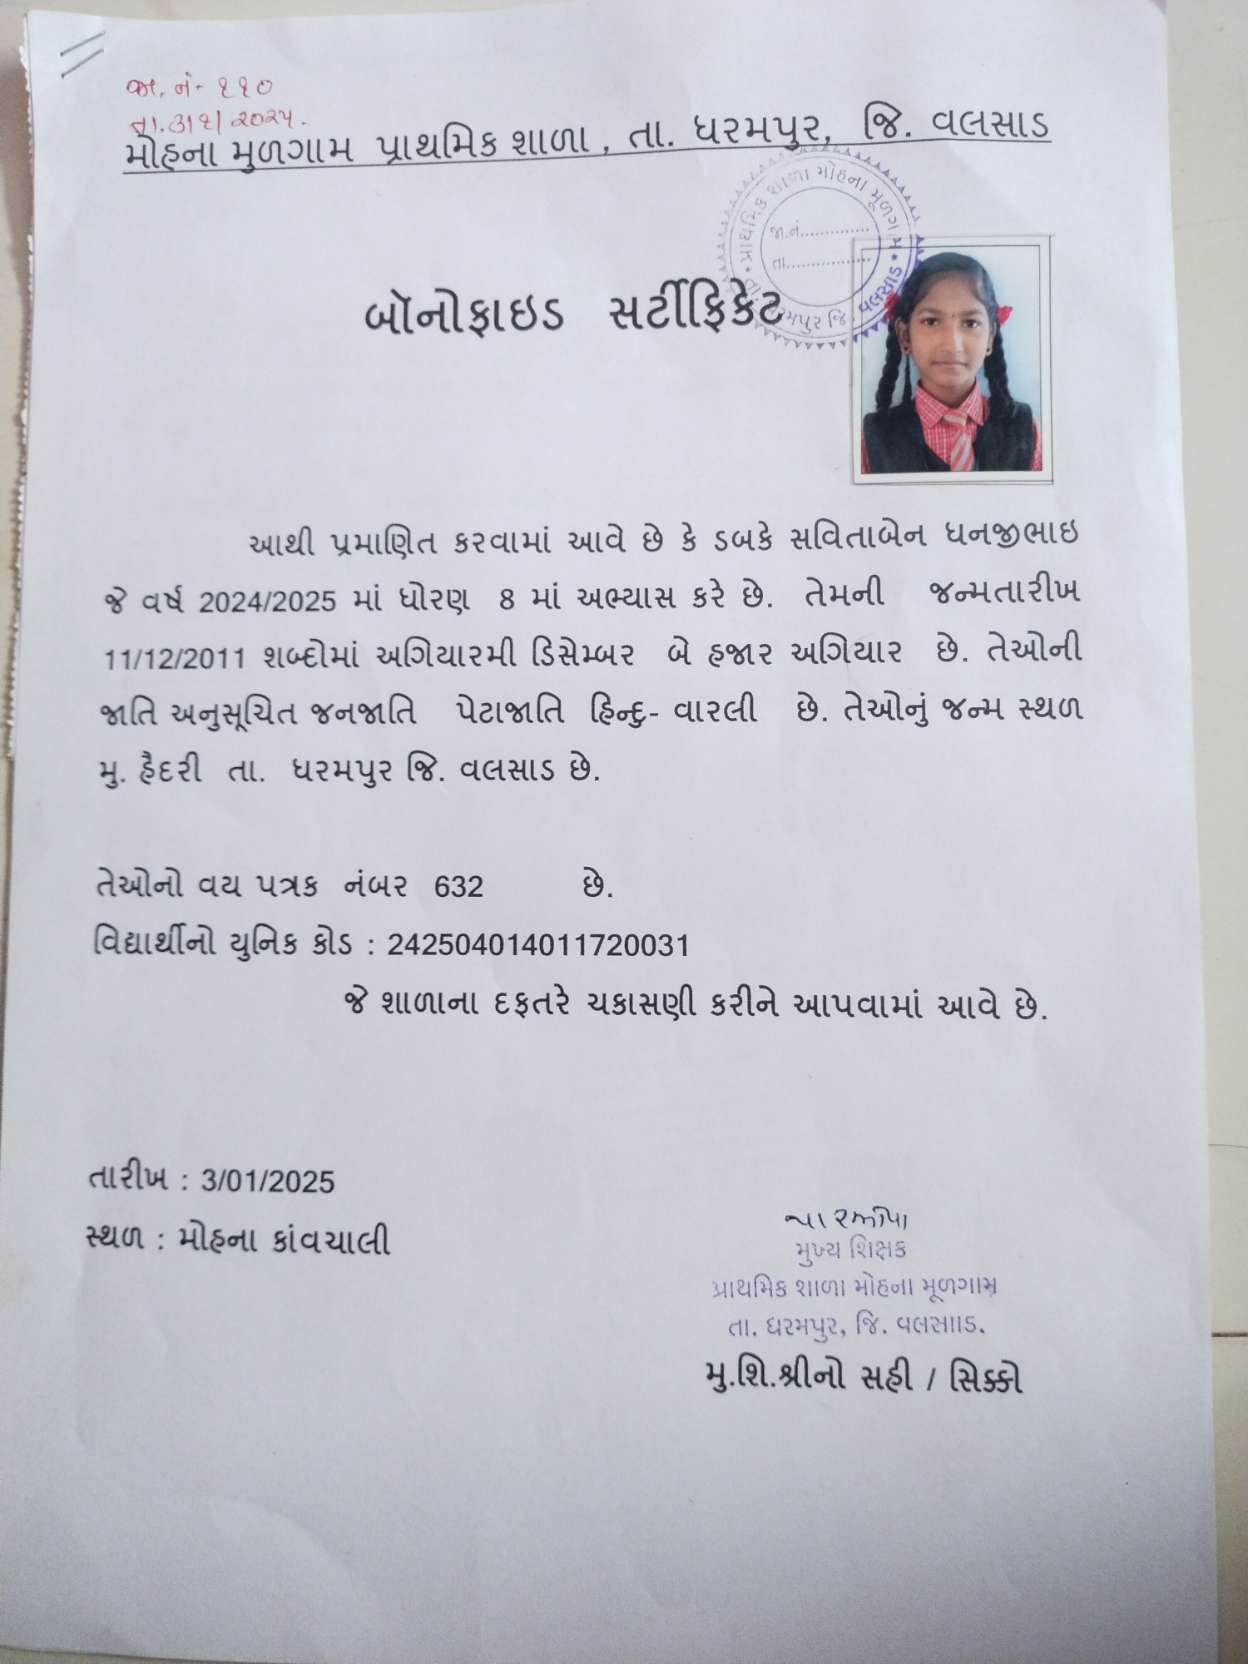 જા. નં- ૧૧૦
તા. ૩/૧/૨૦૨૫.
મોહના મુળગામ પ્રાથમિક શાળા , તા. ધરમપુર, જિ. વલસાડ
પ્રાથમિક શાળા મોહના મૂળગામ
જા.નં..............
તા.................
તા. ધરમપુર જિ. વલસાડ
બૉનોફાઇડ સર્ટીફિકેટ
આથી પ્રમાણિત કરવામાં આવે છે કે ડબકે સવિતાબેન ધનજીભાઇ
જે વર્ષ 2024/2025 માં ધોરણ 8 માં અભ્યાસ કરે છે. તેમની જન્મતારીખ
11/12/2011 શબ્દોમાં અગિયારમી ડિસેમ્બર બે હજાર અગિયાર છે. તેઓની
જાતિ અનુસૂચિત જનજાતિ પેટાજાતિ હિન્દુ- વારલી છે. તેઓનું જન્મ સ્થળ
મુ. હૈદરી તા. ધરમપુર જિ. વલસાડ છે.
તેઓનો વય પત્રક નંબર 632 છે.
વિદ્યાર્થીનો યુનિક કોડ : 242504014011720031
જે શાળાના દફતરે ચકાસણી કરીને આપવામાં આવે છે.
તારીખ : 3/01/2025
સ્થળ : મોહના કાંવચાલી
મુખ્ય શિક્ષક
પ્રાથમિક શાળા મોહના મૂળગામ
તા. ધરમપુર, જિ. વલસાાડ.
મુ.શિ.શ્રીનો સહી / સિક્કો